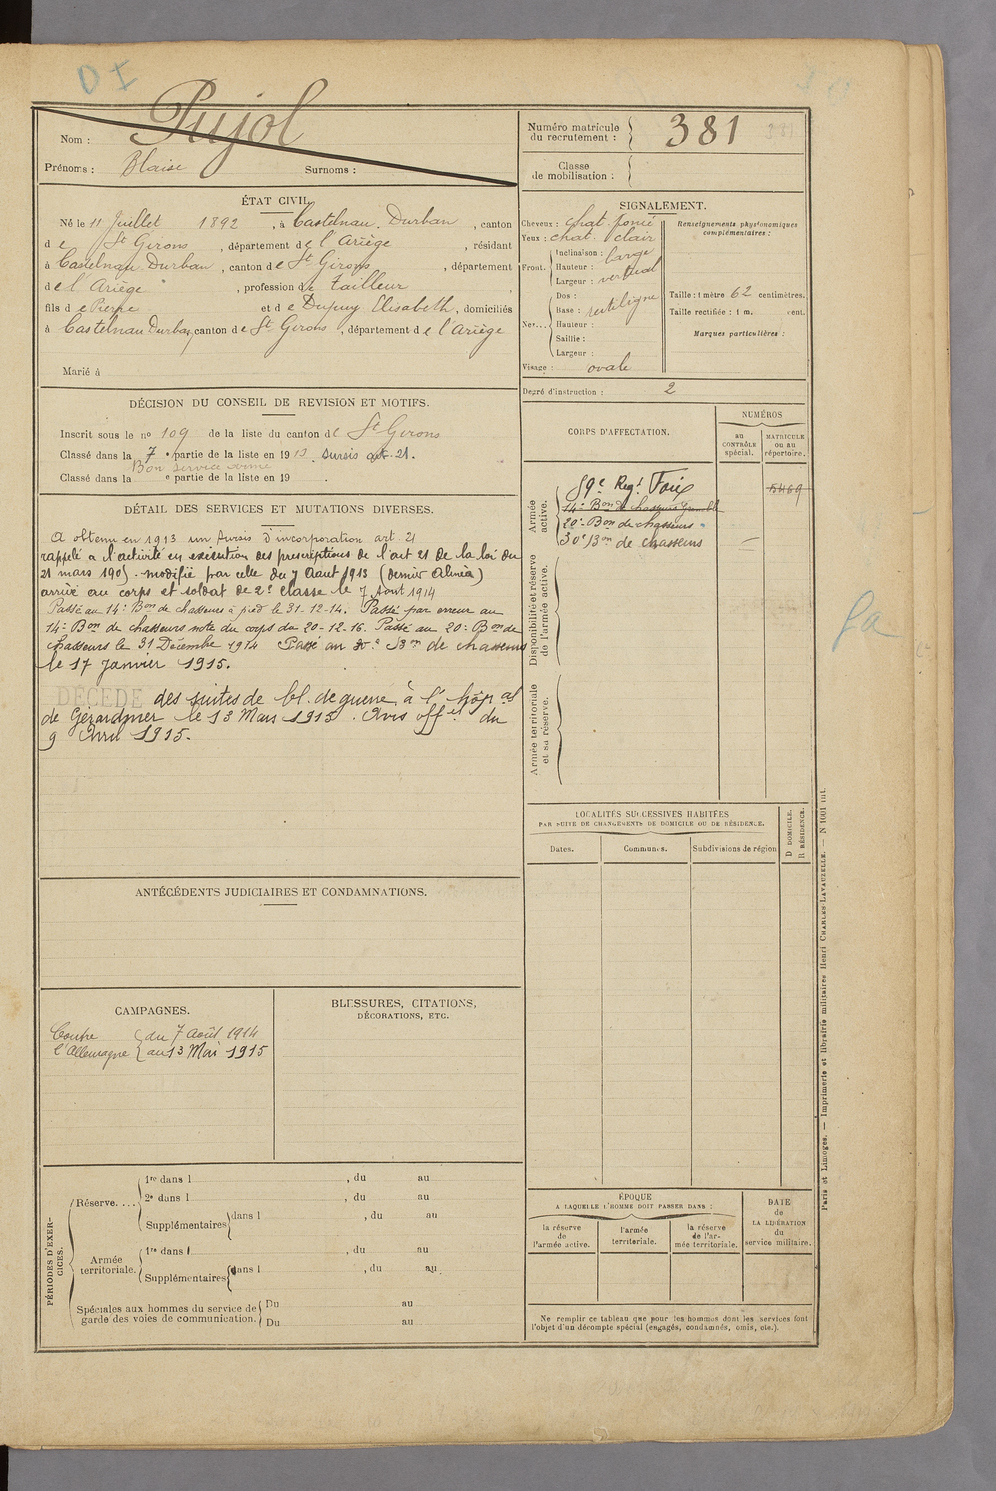 DI
Nom : Pujol
Prénoms : Blaise Surnoms :
Numéro matricule du recrutement : 381
Classe de mobilisation :
ÉTAT CIVIL.
Né le 11 Juillet 1892, à Castelnau-Durban, canton
de St Girons, département de l'Ariège, résidant
à Castelnau Durban, canton de St Girons, département
de l'Ariège, profession de tailleur
fils de Pierre et de Dupuy Elisabeth, domiciliés
à Castelnau Durban, canton de St Girons, département de l'Ariège
Marié à
SIGNALEMENT.
Cheveux : chat. foncé
Yeux : chat. clair
Front. Inclinaison : large
Hauteur : vertical
Largeur :
Nez... Dos : rectiligne
Base :
Hauteur :
Saillie :
Largeur :
Visage : ovale
Renseignements physionomiques complémentaires :
Taille : 1 mètre 62 centimètres.
Taille rectifiée : 1 m. cent.
Marques particulières :
Degré d'instruction : 2
DÉCISION DU CONSEIL DE REVISION ET MOTIFS.
Inscrit sous le no 109 de la liste du canton de St Girons
Classé dans la 7e partie de la liste en 1913. sursis art. 21.
Bon service armé
Classé dans la e partie de la liste en 19
DÉTAIL DES SERVICES ET MUTATIONS DIVERSES.
A obtenu en 1913 un sursis d'incorporation art 21
rappelé à l'activité en exécution des prescriptions de l'art 21 de la loi du
21 mars 1905. modifié par celle du 7 Aout 1913 (dernier alinéa)
arrivé au corps et soldat de 2e classe le 7 Aout 1914
Passé au 14e Bon de chasseurs à pied le 31-12-14. Passé par erreur au
14e Bon de chasseurs note du corps du 20-12-16. Passé au 20e Bon de
chasseurs le 31 Décembre 1914 Passé au 30e Bon de chasseurs
le 17 janvier 1915.
DÉCÉDÉ des suites de bl. de guerre à l'hôpal
de Gérardmer le 13 Mars 1915. Avis offel du
9 Avril 1915.
CORPS D'AFFECTATION.
NUMÉROS
au CONTRÔLE spécial.
MATRICULE ou au RÉPERTOIRE.
Armée active.
59e Regt Foix
14e Bon de chasseurs Grenoble
20e Bon de chasseurs
30e Bon de chasseurs
Disponibilité et réserve de l'armée active.
Armée territoriale et sa réserve.
LOCALITÉS SUCCESSIVES HABITÉES
PAR SUITE DE CHANGEMENTS DE DOMICILE OU DE RÉSIDENCE.
Dates. Communes. Subdivisions de région
D DOMICILE.
R RÉSIDENCE.
ANTÉCÉDENTS JUDICIAIRES ET CONDAMNATIONS.
CAMPAGNES.
Contre du 7 Août 1914
l'Allemagne au 13 Mai 1915
BLESSURES, CITATIONS,
DÉCORATIONS, ETC.
PÉRIODES D'EXERCICES.
Réserve.... 1re dans l , du au
2e dans l , du au
Supplémentaires dans l , du au
Armée territoriale. 1re dans l , du au
Supplémentaires dans l , du au
Spéciales aux hommes du service de garde des voies de communication. Du au
Du au
ÉPOQUE
A LAQUELLE L'HOMME DOIT PASSER DANS :
la réserve de l'armée active.
l'armée territoriale.
la réserve de l'armée territoriale.
DATE de LA LIBÉRATION du service militaire.
Ne remplir ce tableau que pour les hommes dont les services font
l'objet d'un décompte spécial (engagés, condamnés, omis, etc.).
Paris et Limoges. — Imprimerie et librairie militaires Henri CHARLES-LAVAUZELLE. — N 1001 int.